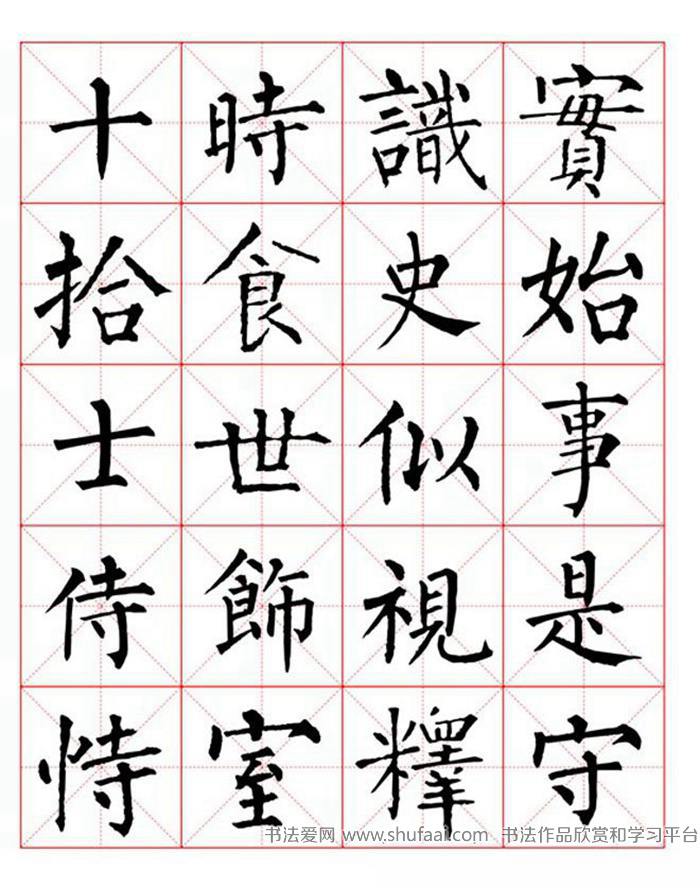 十時識實
拾食史始
士世似事
侍飾視是
恃室釋守
书法爱网 www.shufaai.com 书法作品欣赏和学习平台